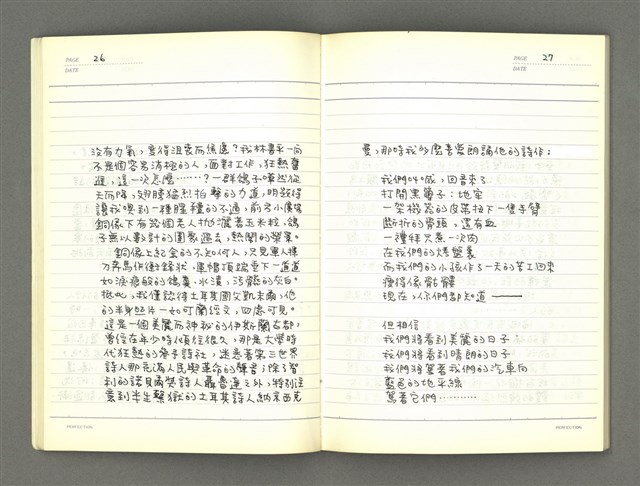 PAGE 26
DATE
沒有力氣，變得沮喪而焦慮？我林書禾一向
不是個容易消極的人，面對工作，狂熱奮
進，這一次怎麼……？一群鴿子嘩然從
天而降，翅膀猛烈拍擊的力道，明顯得
讓我嗅到一種腥羶的不適，前方小廣場
銅像下有幾個老人拋灑著玉米粒，鴿
子無以數計的圍聚過去，熱鬧的景象。
銅像上紀念的不知何人，只見軍人揮
刀奔馬作衝鋒狀，軍帽頂端垂下一道道
如淚痕般的鴿糞、水漬，污髒的灰白。
抵此，我僅認得土耳其國父凱末爾，他
的半身照片一如可蘭經文，四處可見。
這是一個美麗而神秘的伊斯蘭古都，
曾經在年少時傾往很久，那是大學時
代狂熱的參予詩社，迷戀著第三世界
詩人那充滿人民與革命的聲音；除了智
利的諾貝爾獎詩人聶魯達之外，特別注
意到半生繫獄的土耳其詩人納京西克
PERFECTION
PAGE 27
DATE
曼，那時我多麼喜愛朗誦他的詩作：
我們叫喊，回音來了
打開黑簿子：地牢
一架機器的皮帶扭下一隻手臂
斷折的骨頭，還有血
一種拜只煮一次肉
在我們的烤盤裏
而我們的小孩作了一天的苦工回來
瘦得像骷髏
現在，你們都知道——
但相信
我們將看到美麗的日子
我們將看到晴朗的日子
我們將駕著我們的汽車向
藍色的地平線
駕著它們………
PERFECTION